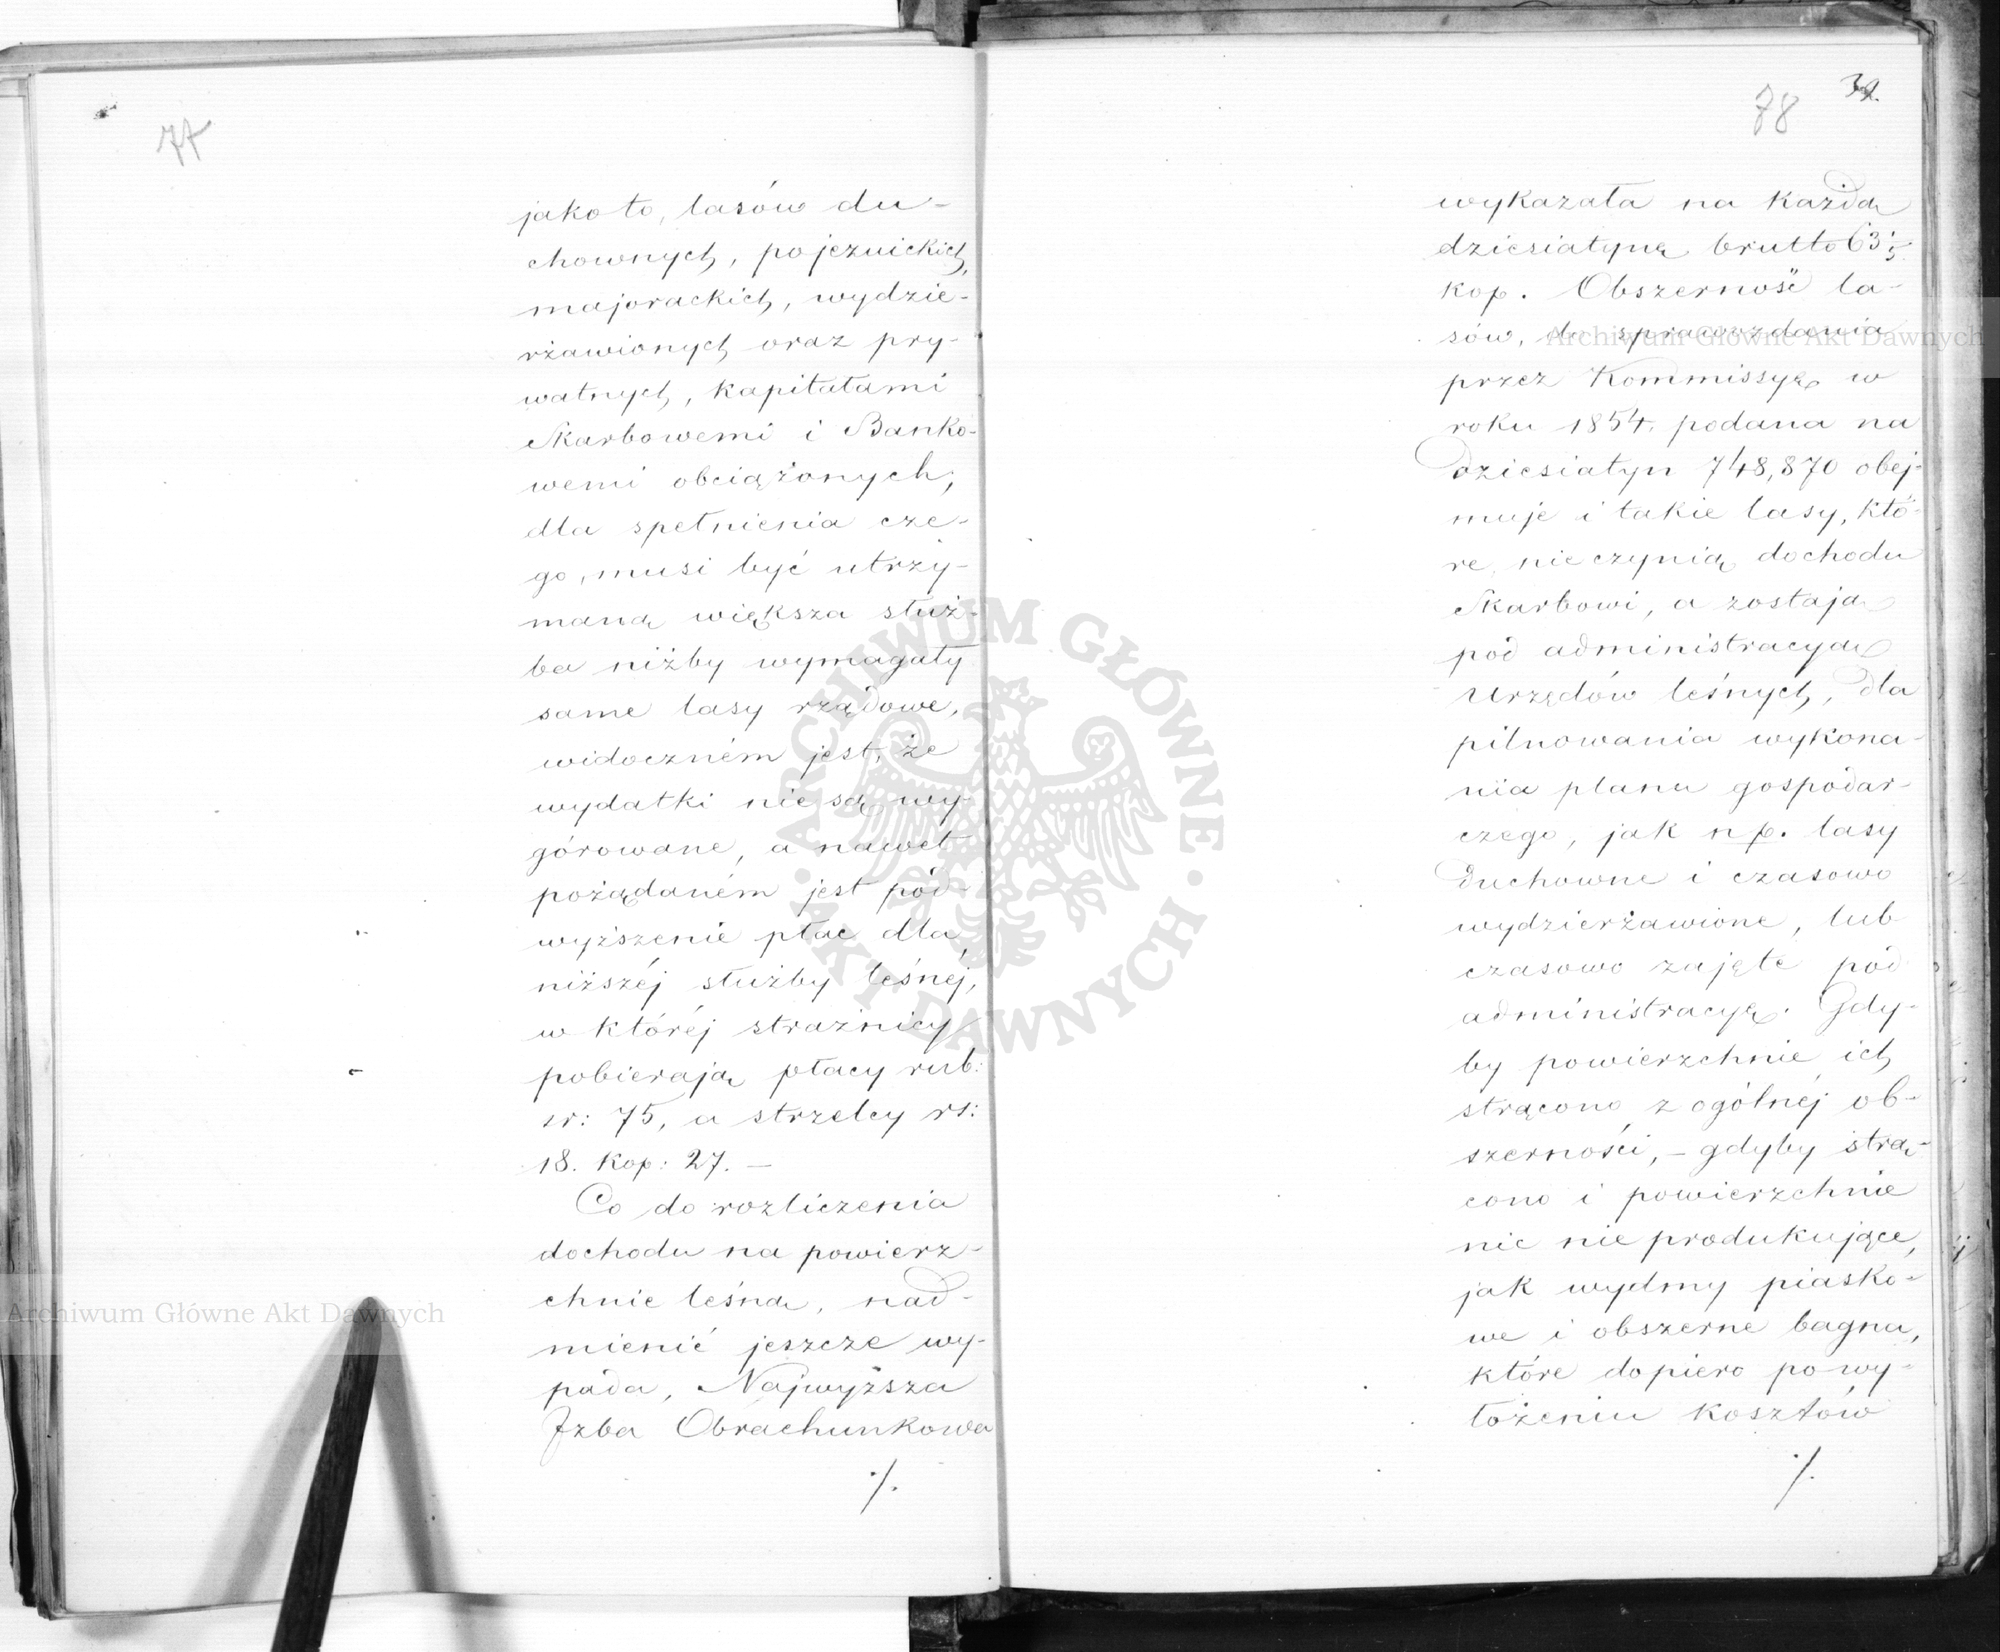 77
jako to, lasów du-
chownych, pojezuickich,
majorackich, wydzie-
rżawionych oraz pry-
watnych, kapitałami
Skarbowemi i Banko-
wemi obciążonych,
dla spełnienia cze-
go, musi być utrzy-
maną większa służ-
ba niżby wymagały
same lasy rządowe,
widoczném jest, że
wydatki nie są wy-
górowane, a nawet
pożądaném jest pod-
wyższenie płac dla
niższéj służby leśnéj,
w któréj strażnicy
pobierają płacy rub:
sr: 75, a strzelcy rs:
18. kop: 27. —
Co do rozliczenia
dochodu na powierz-
chnie leśną, nad-
mienić jeszcze wy-
pada, Najwyższa
Izba Obrachunkowa
./.
78
wykazała na każdą
dziesiatynę brutto 63
kop. Obszerność la-
sów, do sprawozdania
przez Kommissyę w
roku 1854. podana na
dziesiatyn 748,870 obej-
muje i takie lasy, któ-
re, nie czynią dochodu
Skarbowi, a zostają
pod administracyą
Urzędów leśnych, dla
pilnowania wykona-
nia planu gospodar-
czego, jak np. lasy
Duchowne i czasowo
wydzierżawione, lub
czasowo zajęte pod
administracyę. Gdy-
by powierzchnie ich
strącono z ogólnéj ob-
szerności, – gdyby strą-
cono i powierzchnie
nic nie produkujące,
jak wydmy piasko-
we i obszerne bagna,
które dopiero po wy-
łożeniu kosztów
./.
ARCHIWUM GŁÓWNE AKT DAWNYCH
Archiwum Główne Akt Dawnych
Archiwum Główne Akt Dawnych